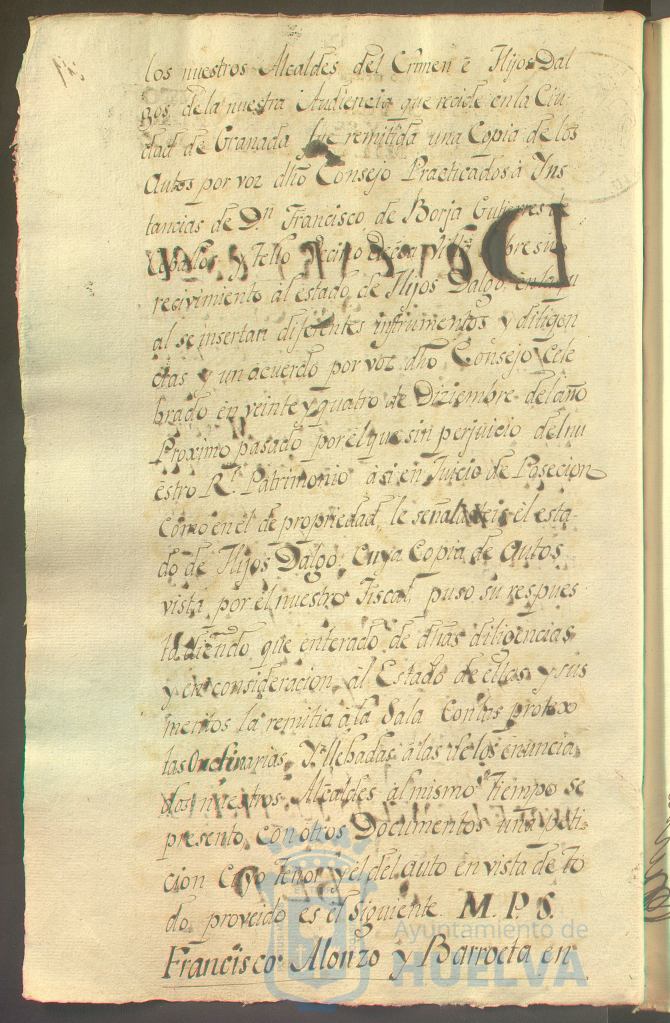 los nuestros Alcaldes del Crimen è Hijos Dal
gos de la nuestra Audiencia que recide en la Ciu
dad de Granada fue remitida una Copia de los
Autos por voz dho Consejo Practicados à Ins
tancias de Dn. Francisco de Borja Gutierres de
Ceballos y Tello Vecino de esa Villa sobre su
recivimiento al estado de Hijos Dalgo, en la qu
al se insertan diferentes instrumentos y diligen
cias y un acuerdo por voz dho Consejo Cele
brado en veinte y quatro de Diziembre del año
Proximo pasado por el que sin perjuicio del nu
estro Rl. Patrimonio asi en Juicio de Posecion
Como en el de propriedad, le señalasteis el esta
do de Hijos Dalgo, Cuya Copia de Autos
vista por el nuestro Fiscal, puso su respues
ta diciendo que enterado de dhas diligencias
y en consideracion al Estado de ellas y sus
meritos la remitia à la Sala Con las protex
tas Ordinarias, Y llebadas a las de los enuncia
dos nuestros Alcaldes al mismo Tiempo se
presento con otros Documentos una peti
cion Cuyo Tenor y el del auto en vista de to
do proveido es el Siguiente M. P. S.
Francisco Alonzo y Barroeta en
Ayuntamiento de
HUELVA